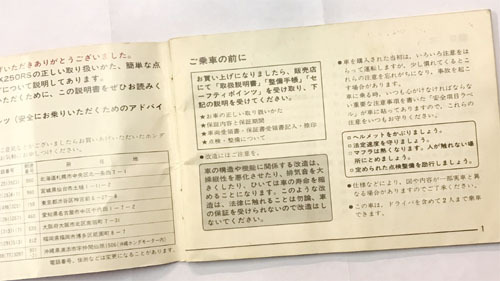 いただきありがとうございました。
X250RSの正しい取り扱いかた、簡単な点
について説明してあります。
ただくために、この説明書をぜひお読みく
ッツ(安全にお乗りいただくためのアドバイ
所在地
北海道札幌市中央区北一条西
宮城県仙台市土樋1-
愛知県名古屋市中区
福岡県福岡市博多区
電話番号、住所などは変更になることがあります。
ご乗車の前に
お買い上げになりましたら、販売店
にて「取扱説明書」「整備手帳」「セ
ーフティポインツ」を受け取り、下
記の説明を受けてください。
★お車の正しい取り扱い
★保証内容と保証期間
★車両受領書・保証書受領書記入・捺印
★点検・整備について
●改造はご注意を。
車の構造や機能に関係する改造は、
操縦性を悪化させたり、排気音を大
きくしたり、ひいては車の寿命を縮
めることになります。このような改
造は、法律に触れることは勿論、車
の保証を受けられないので改造はし
ないでください。
●車を購入された当初は、いろいろ注意をは
らって運転しますが、少し慣れてくるとこ
れらの注意を忘れがちになり、事故を起こ
す場合があります。
車に乗る時、いつも心がけなければならな
い重要な注意事項を書いた「安全項目ラベ
ル」が車に貼ってありますので、これらの
注意をいつもお守りください。
○ヘルメットをかぶりましょう。
○法定速度を守りましょう。
○マフラは熱くなります。人が触れない場
所にとめましょう。
○定められた点検整備を励行しましょう。
●仕様などにより、図や内容が一部実車と異
なる場合がありますのでご了承ください。
●この車は、ドライバを含めて2人まで乗車
できます。
1